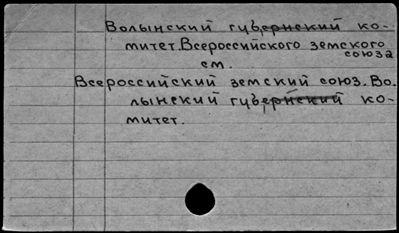 Волынский губернский ко-
митет Всероссийского земского
союза
см.
Всероссийский земский союз. Во-
лынский губернский ко-
митет.